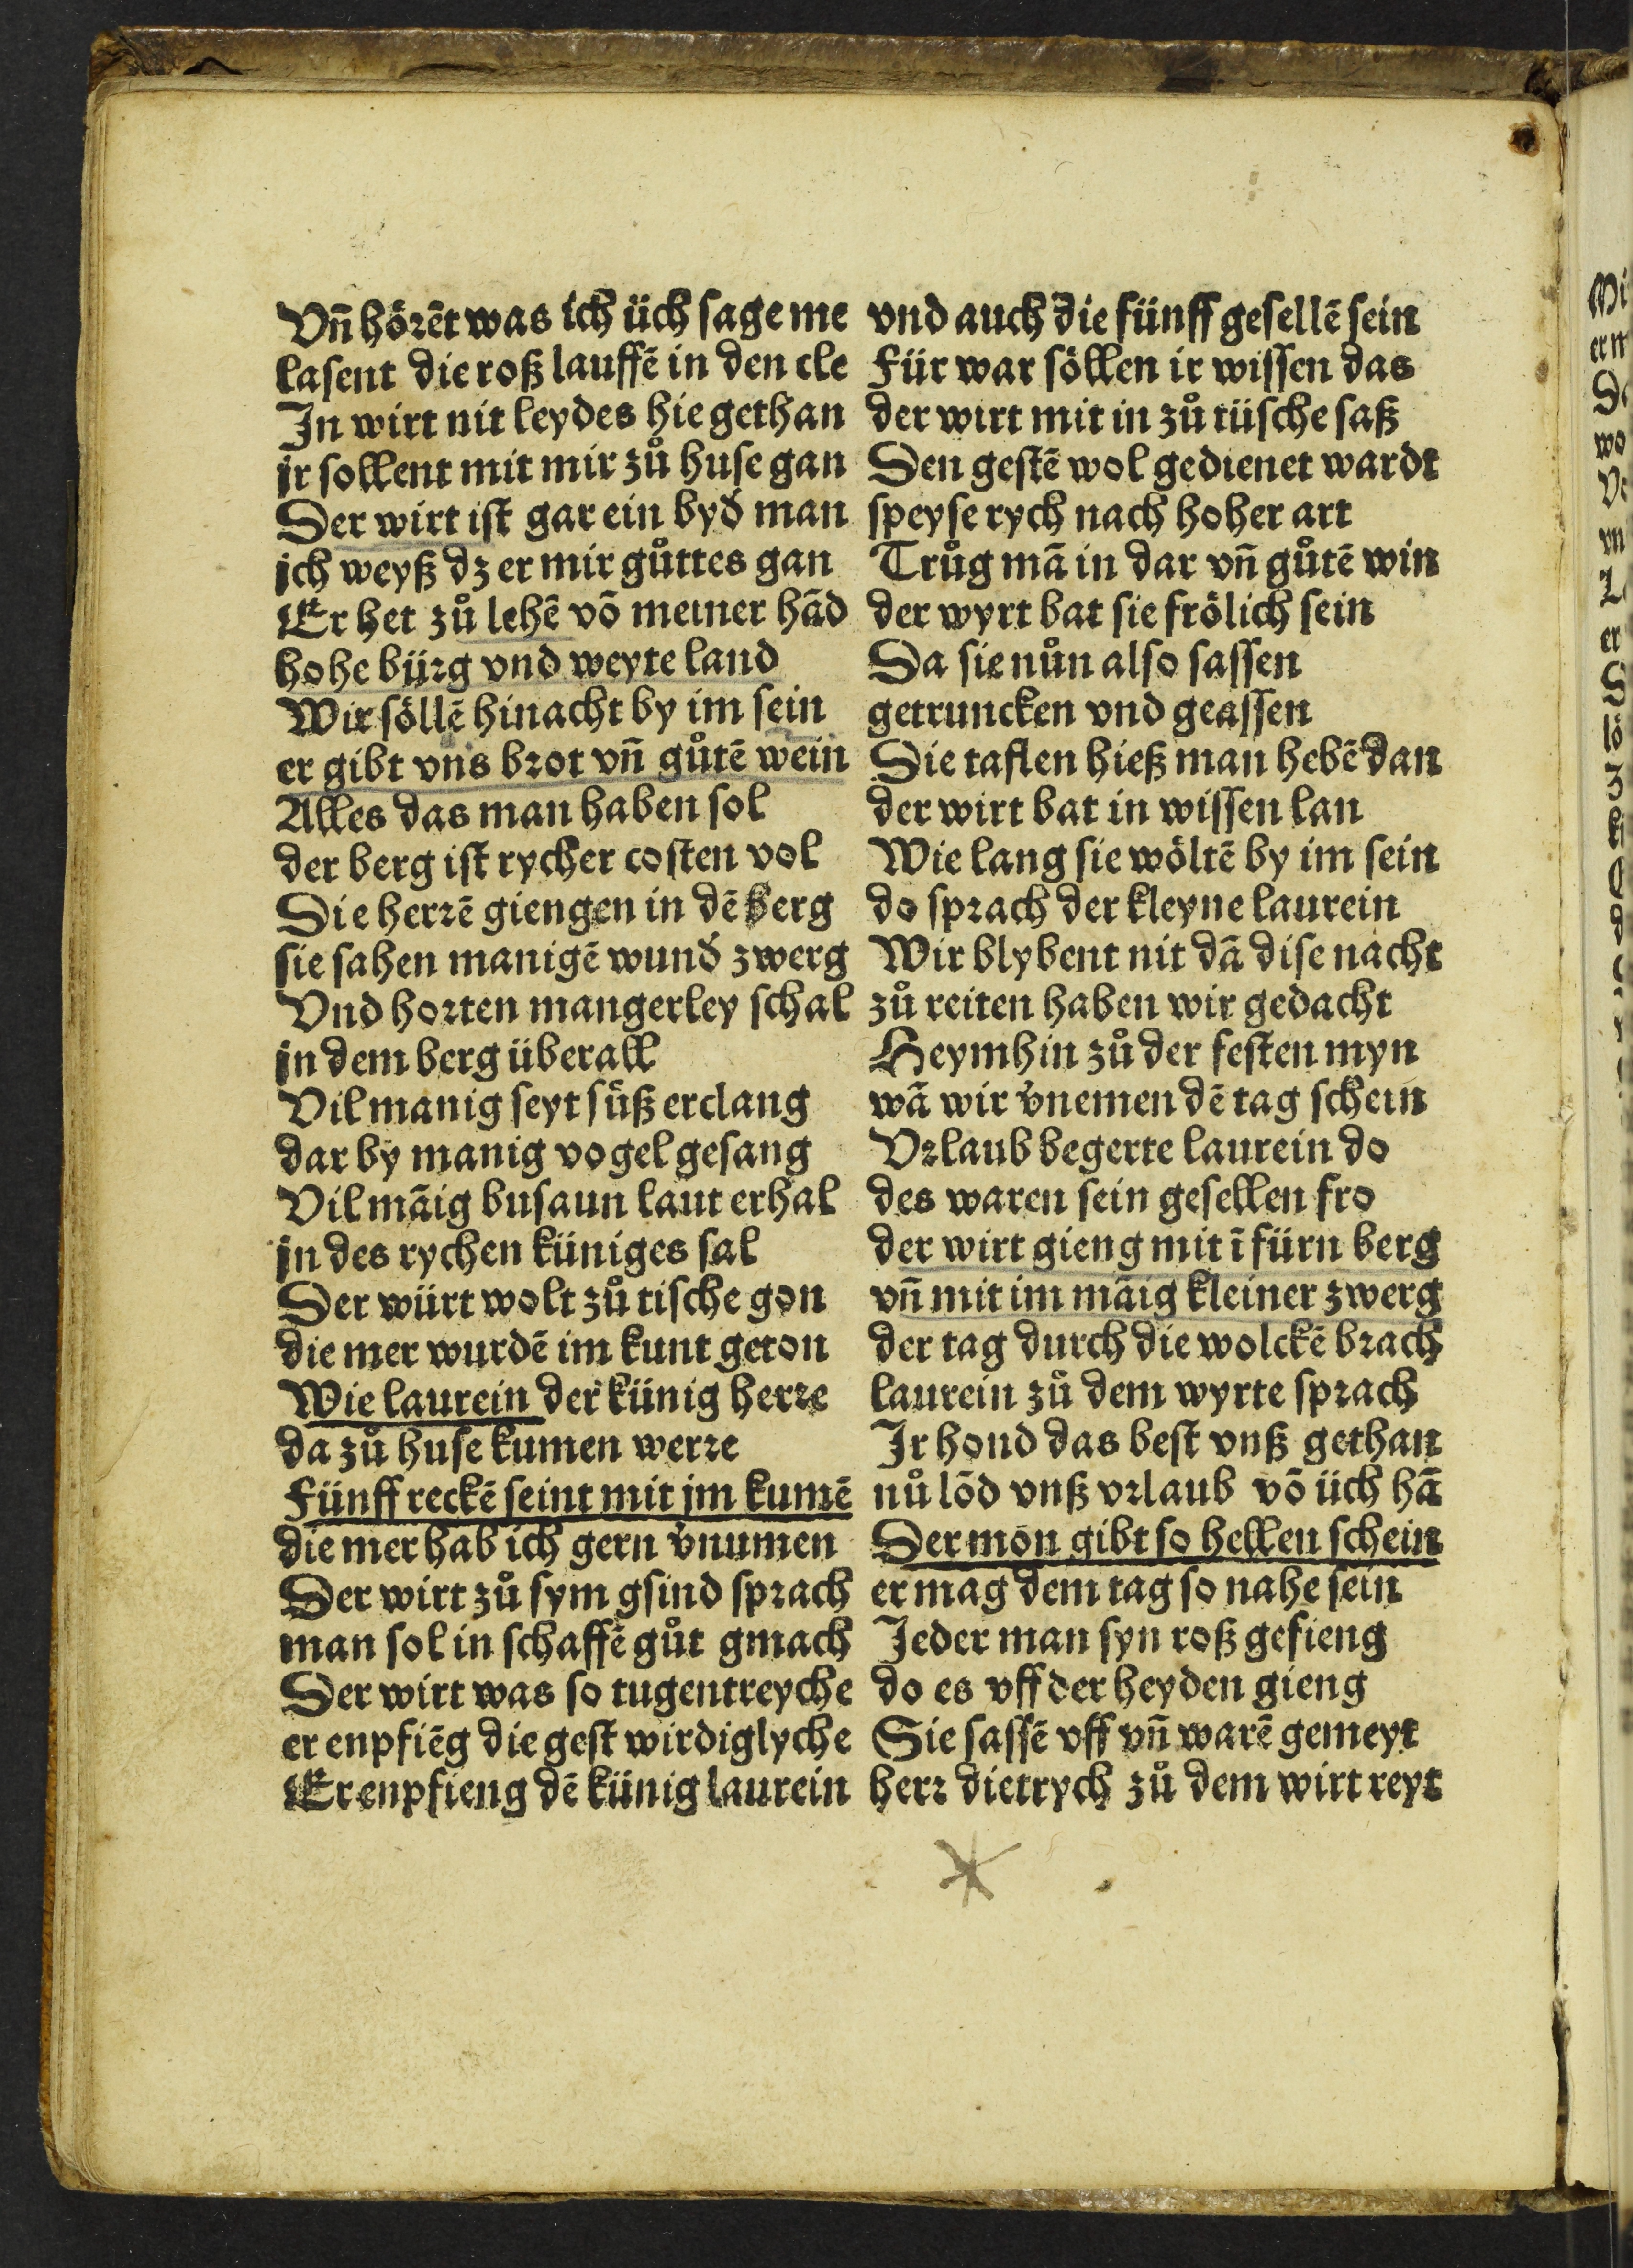 Vñ hörēt was ich üch sage me
lasent die roß lauffē in den cle
In wirt nit leydes hie gethan
ir sollent mit mir zů huse gan
Der wirt ist gar ein byđ man
ich weyß dz er mir gůttes gan
Er het zů lehē vō meiner hãd
hohe bürg vnd weyte land
Wir söllē hinacht by im sein
er gibt vns brot vñ gůtē wein
Alles das man haben sol
der berg ist rycher costen vol
Die herrē giengen in dē berg
sie sahen manigē wunđ zwerg
Vnd horten mangerley schal
in dem berg überall
Vil manig seyt süß erclang
dar by manig vogel gesang
Vil mãig busaun laut erhal
in des rychen küniges sal
Der würt wolt zů tische gon
die mer wurdē im kunt geton
Wie laurein der künig herre
da zů huse kumen werre
Fünff reckē seint mit jm kumē
die mer hab ich gern v̓numen
Der wirt zů sym gsind sprach
man sol in schaffē gůt gmach
Der wirt was so tugentreyche
er enpfiēg die gest wirdiglyche
Er enpfieng dē künig laurein
vnd auch die fünff gesellē sein
Für war söllen ir wissen das
der wirt mit in zů tüsche saß
Den gestē wol gedienet wardt
speyse rych nach hoher art
Trůg mã in dar vñ gůtē win
der wyrt bat sie frölich sein
Da sie nůn also sassen
getruncken vnd geassen
Die taflen hieß man hebē dan
der wirt bat in wissen lan
Wie lang sie wöltē by im sein
do sprach der kleyne laurein
Wir blybent nit dã dise nacht
zů reiten haben wir gedacht
Heymhin zů der festen myn
wã wir v̓nemen dē tag schein
Vrlaub begerte laurein do
des waren sein gesellen fro
der wirt gieng mit ī fürn berg
vñ mit im mãig kleiner zwerg
der tag durch die wolckē brach
laurein zů dem wyrte sprach
Ir hond das best vnß gethan
nů lōd vnß vrlaub vō üch hã
Der mon gibt so hellen schein
er mag dem tag so nahe sein
Jeder man syn roß gefieng
do es vff der heyden gieng
Sie sassē vff vñ warē gemeyt
herr dietrych zů dem wirt reyt